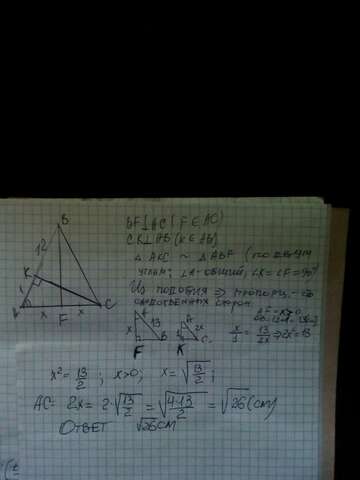 B
12
K
1
A
x
F
x
C
BF⊥AC (F∈AC)
CK⊥AB (K∈AB)
△AKC ~ △ABF (по двум
углам; ∠A-общий, ∠K=∠F=90°
Из подобия ⇒ пропорц.-ть
сходственных сторон.
A
x
13
F
B
A
1
2x
K
C
x/1 = 13/2x ⇒ 2x²=13
x² = 13/2 ; x>0; x = √(13/2) ;
AC = 2x = 2·√(13/2) = √(4·13/2) = √26 (см)
Ответ √26 см